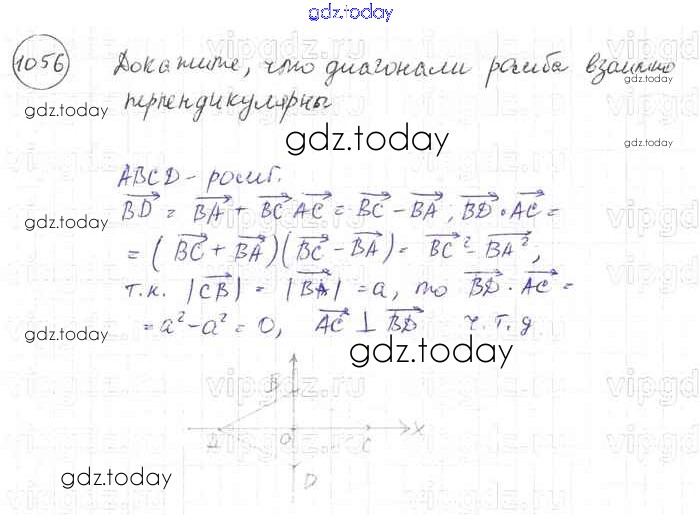 gdz.today
1056 Докажите, что диагонали ромба взаимно
перпендикулярны
gdz.today
gdz.today
gdz.today
ABCD - ромб.
BD = BA + BC AC = BC - BA; BD · AC =
gdz.today
gdz.today
= (BC + BA)(BC - BA) = BC² - BA²;
т.к. |CB| = |BA| = a, то BD · AC =
= a² - a² = 0, AC ⊥ BD ч.т.д
gdz.today
gdz.today
B
A O C X
D
gdz.today
gdz.today